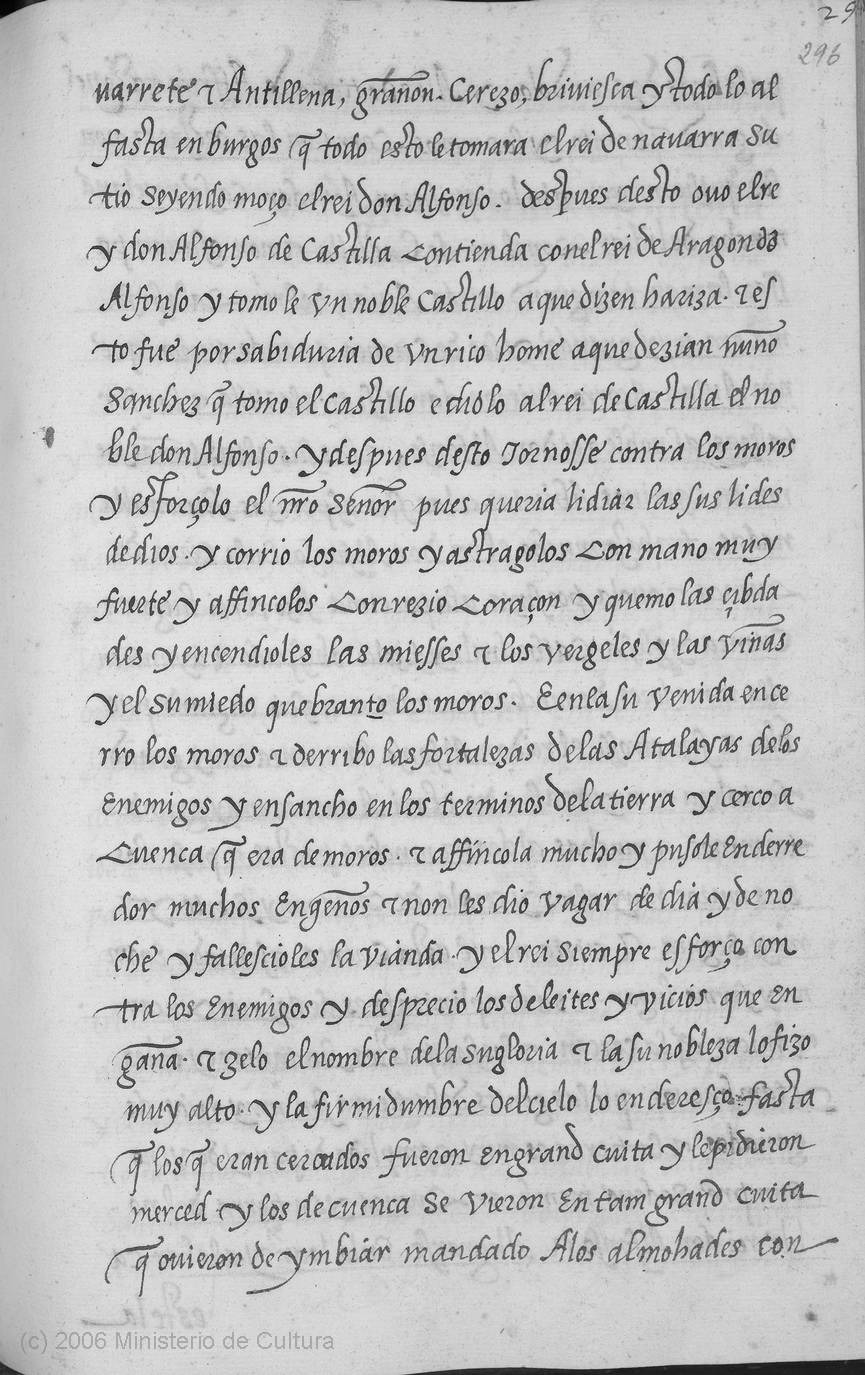 29
296
uarrete τ Antillena, grañon. Cerezo, briuiesca y todo lo al
fasta en burgos q̄ todo esto le tomara el rei de nauarra su
tio seyendo moço el rei don Alfonso. despues desto ouo el re
y don Alfonso de Castilla contienda con el rei de Aragon dō
Alfonso y tomo le vn noble Castillo a que dizen hariza. τ es
to fue por sabiduria de vn rico home a que dezian nuño
Sanchez q̄ tomo el Castillo e diólo al rei de Castilla el no
ble don Alfonso. y despues desto Tornosse contra los moros
y esforçolo el nr̄o Señor pues queria lidiar las sus lides
de dios. y corrio los moros y astragolos con mano muy
fuerte y affincolos con rezio coraçon y quemo las çibda
des y encendioles las miesses τ los vergeles y las viñas
y el su miedo quebranto los moros. E en la su venida ence
rro los moros τ derribo las fortalezas de las Atalayas de los
Enemigos y ensancho en los terminos de la tierra y cerco a
Cuenca q̄ era de moros. τ affincola mucho y pusole Enderre
dor muchos Engeños τ non les dio vagar de dia y de no
che y fallescioles la vianda. y el rei siempre esforço con
tra los Enemigos y desprecio los deleites y vicios que En
gaña. τ zelo el nombre de la su gloria τ la su nobleza lo fizo
muy alto. y la firmidumbre del cielo lo enderesço fasta
q̄ los q̄ eran cercados fueron en grand cuita y le pidieron
merced y los de cuenca se vieron En tam grand cuita
q̄ ouieron de ymbiar mandado A los almohades con
(c) 2006 Ministerio de Cultura